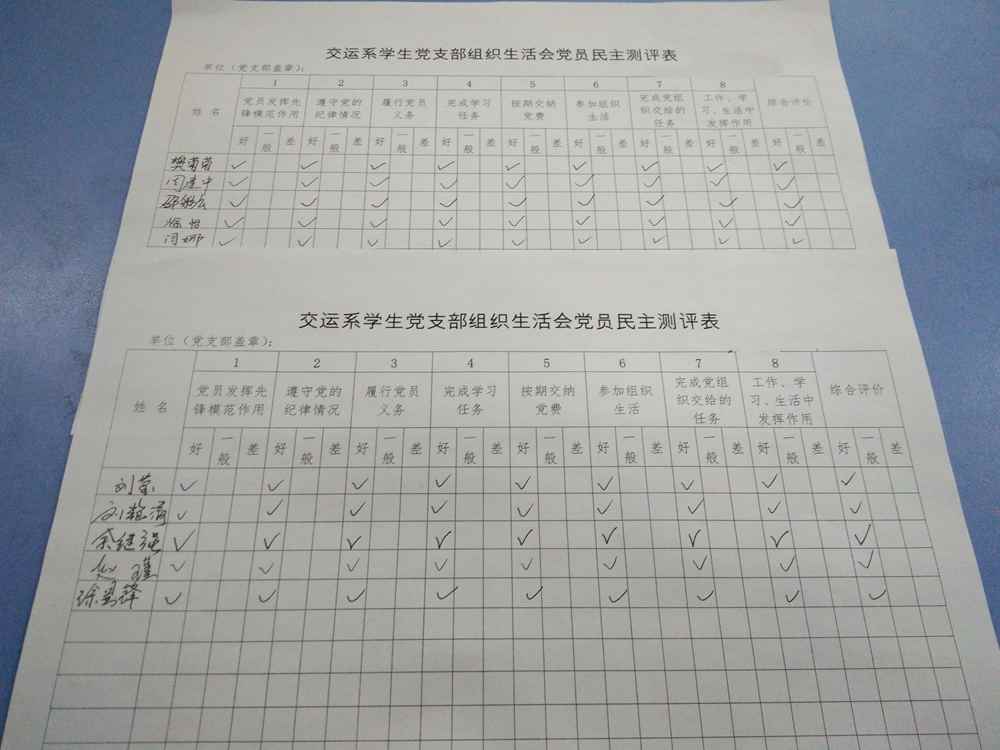 交运系学生党支部组织生活会党员民主测评表
单位（党支部盖章）：
姓 名 1 2 3 4 5 6 7 8 综合评价
党员发挥先锋模范作用 遵守党的纪律情况 履行党员义务 完成学习任务 按期交纳党费 参加组织生活 完成党组织交给的任务 工作、学习、生活中发挥作用
好 一般 差 好 一般 差 好 一般 差 好 一般 差 好 一般 差 好 一般 差 好 一般 差 好 一般 差 好 一般 差
樊菊芳 ✓ ✓ ✓ ✓ ✓ ✓ ✓ ✓ ✓
闫建中 ✓ ✓ ✓ ✓ ✓ ✓ ✓ ✓ ✓
✓ ✓ ✓ ✓ ✓ ✓ ✓ ✓ ✓
✓ ✓ ✓ ✓ ✓ ✓ ✓ ✓ ✓
闫娜 ✓ ✓ ✓ ✓ ✓ ✓ ✓ ✓ ✓
交运系学生党支部组织生活会党员民主测评表
单位（党支部盖章）：
姓 名 1 2 3 4 5 6 7 8 综合评价
党员发挥先锋模范作用 遵守党的纪律情况 履行党员义务 完成学习任务 按期交纳党费 参加组织生活 完成党组织交给的任务 工作、学习、生活中发挥作用
好 一般 差 好 一般 差 好 一般 差 好 一般 差 好 一般 差 好 一般 差 好 一般 差 好 一般 差 好 一般 差
刘莹 ✓ ✓ ✓ ✓ ✓ ✓ ✓ ✓ ✓
✓ ✓ ✓ ✓ ✓ ✓ ✓ ✓ ✓
余继强 ✓ ✓ ✓ ✓ ✓ ✓ ✓ ✓ ✓
赵瑾 ✓ ✓ ✓ ✓ ✓ ✓ ✓ ✓ ✓
✓ ✓ ✓ ✓ ✓ ✓ ✓ ✓ ✓